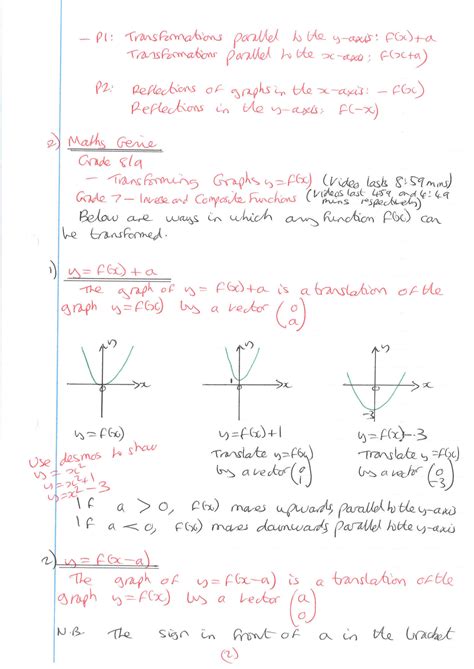 – P1: Transformations parallel to the y-axis: f(x)+a
Transformations parallel to the x-axis: f(x+a)
P2: Reflections of graphs in the x-axis: – f(x)
Reflections in the y-axis: f(-x)
2) Maths Genie
Grade 8/9
– Transforming Graphs y=f(x) (Video lasts 8:59 mins)
Grade 7 – Inverse and Composite Functions (Videos last 4:59 and 4:49
mins respectively)
Below are ways in which any function f(x) can
be transformed.
1) y = f(x) + a
The graph of y = f(x)+a is a translation of the
graph y=f(x) by a vector (0 a)
y
x
0
y
1
x
0
y
x
0
-3
y=f(x)
y=f(x)+1
y=f(x)-3
Translate y=f(x)
by a vector (0 1)
Translate y=f(x)
by a vector (0 -3)
Use desmos to show
y = x²
y=x²+1
y=x²-3
If a > 0, f(x) moves upwards parallel to the y-axis
If a < 0, f(x) moves downwards parallel to the y-axis
2) y = f(x-a)
The graph of y=f(x-a) is a translation of the
graph y=f(x) by a vector (a 0)
N.B. The sign in front of a in the bracket
(2)